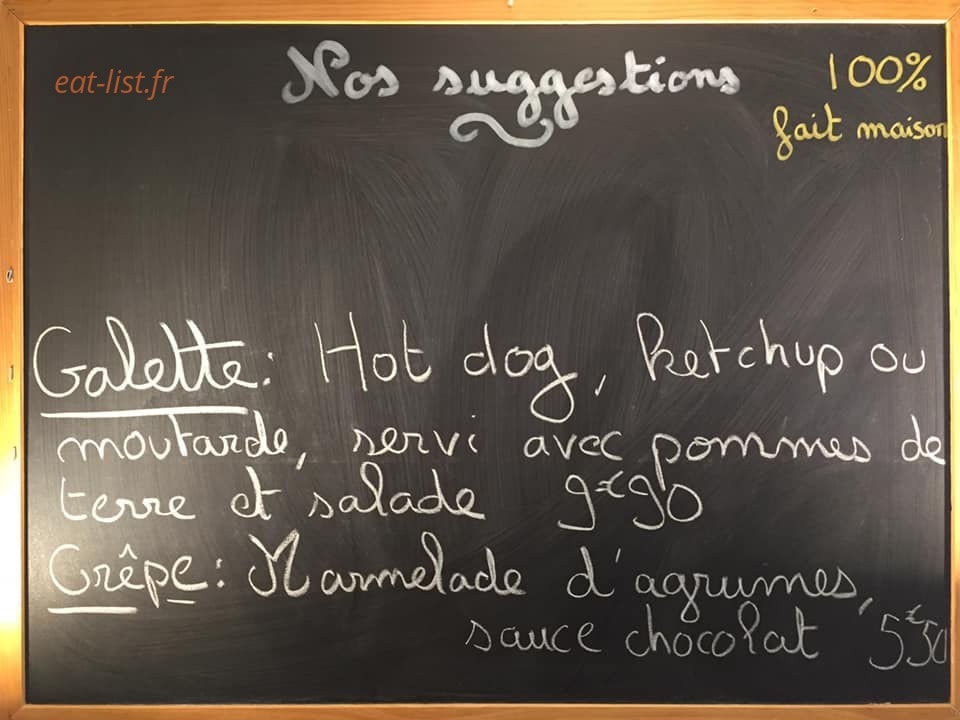 eat-list.fr
Nos suggestions
100%
fait maison
Galette: Hot dog, ketchup ou
moutarde, servi avec pommes de
terre et salade 9€90
Crêpe: Marmelade d'agrumes,
sauce chocolat 5€50